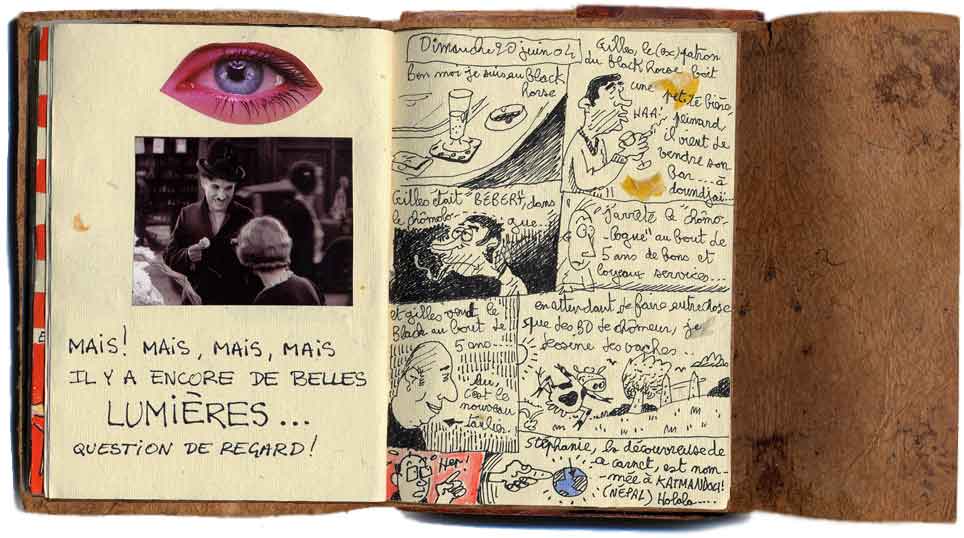 MAIS! MAIS, MAIS, MAIS
IL Y A ENCORE DE BELLES
LUMIÈRES...
QUESTION DE REGARD!
Dimanche 20 juin 04
Bon moi je suis au Black
horse
Gilles, le (ex) patron
du black horse boit
une petite bière
peinard
"HAA"
il vient de
vendre son
bar.....à
doundjai...
Gilles était "BÉBERT", dans
le chômolo...
que...
j'arrête le "chômo-
logue" au bout de
5 ans de bons et
loyaux services...
et gilles vend le
Black au bout de
5 ans...
c'est le
nouveau
taulier.
en attendant de faire autre chose
que des BD de chômeur, je
dessine des vaches...
Hep!
Stéphanie, la découvreuse de
ce carnet, est nom-
mée à KATMANDOU!
(NÉPAL) Holala....